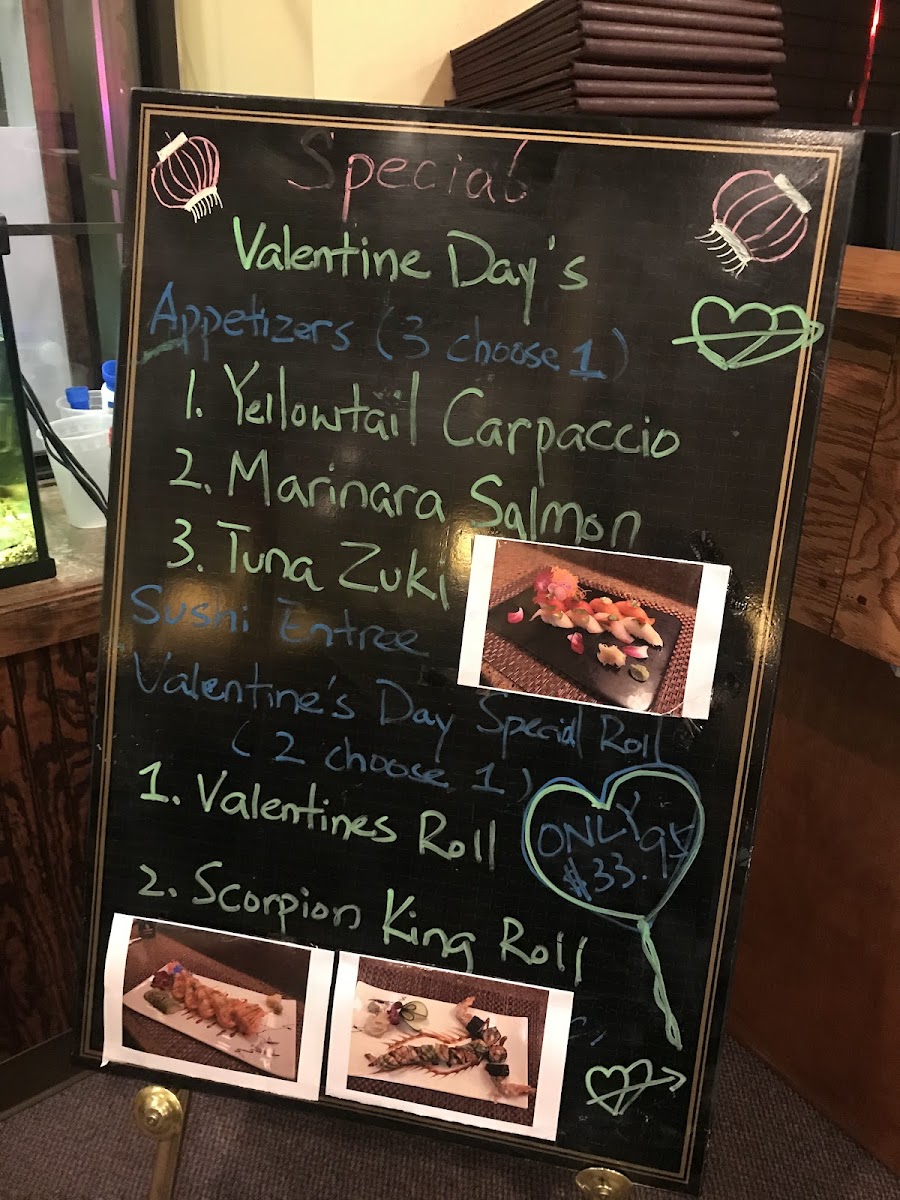 Special
Valentine Day's
Appetizers (3 choose 1)
1. Yellowtail Carpaccio
2. Marinara Salmon
3. Tuna Zuki
Sushi Entree
Valentine's Day Special Roll
(2 choose 1)
1. Valentines Roll
ONLY
$33.99
2. Scorpion King Roll